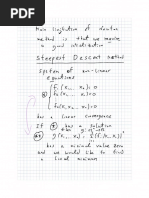 Main limitation of Newton
method is that we moving
a good initialization
Steepest Descent method
System of non-linear
equations
f₁(x₁, ... xₙ)=0
f₂(x₁, ... xₙ)=0
fₙ(x₁, ... xₙ)=0
has a linear convergence
If has a solution
has a minimal value zero
and we would like to find
a local minimum